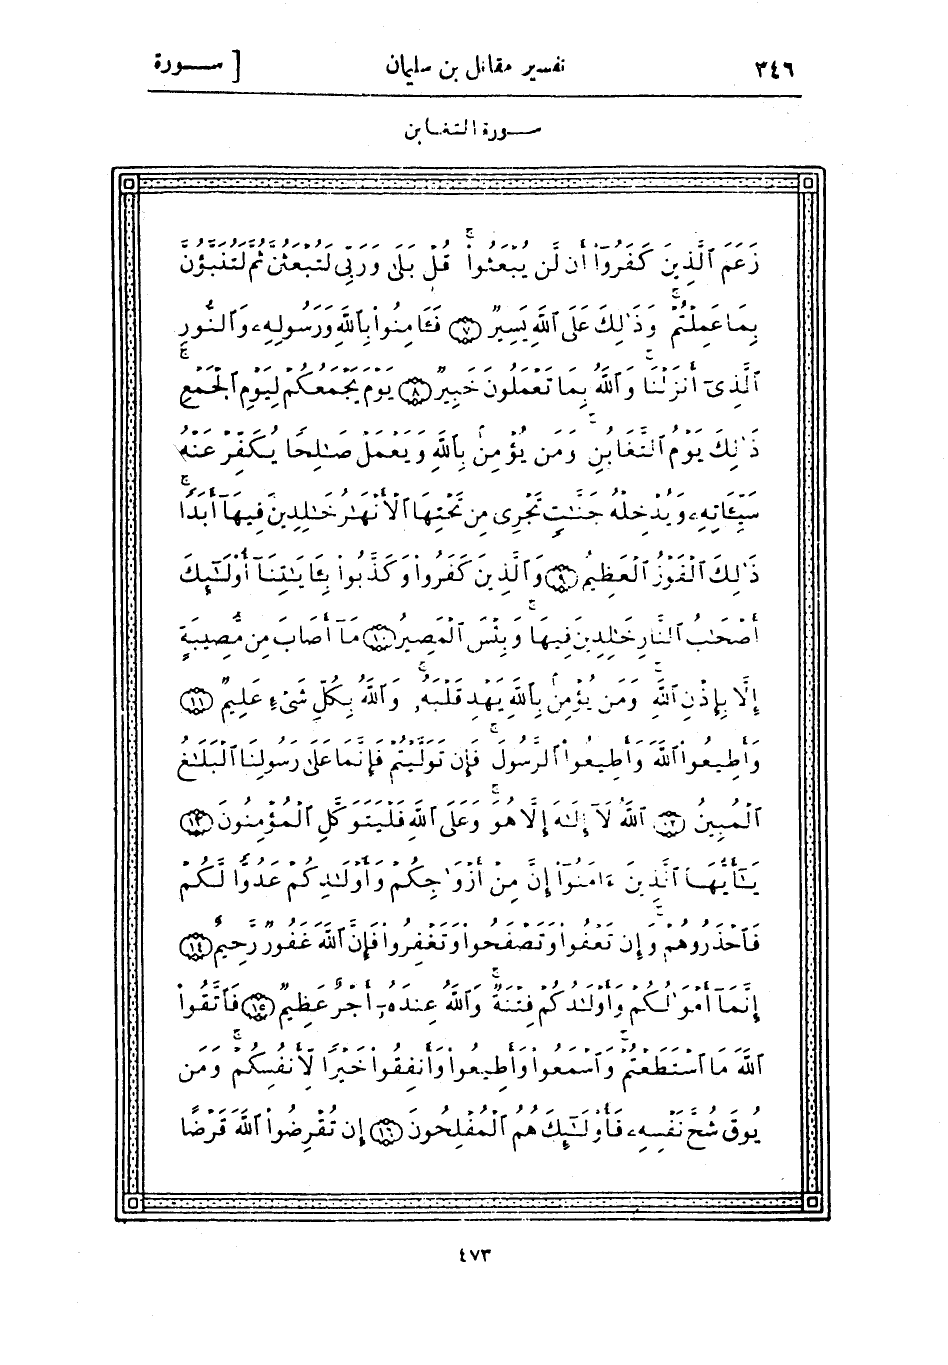 ٣٤٦ تفسير مقاتل بن سليمان [ ســورة
ســورة التغابن
زَعَمَ ٱلَّذِينَ كَفَرُوٓا۟ أَن لَّن يُبْعَثُوا۟ ۚ قُلْ بَلَىٰ وَرَبِّى لَتُبْعَثُنَّ ثُمَّ لَتُنَبَّؤُنَّ
بِمَا عَمِلْتُمْ ۚ وَذَٰلِكَ عَلَى ٱللَّهِ يَسِيرٌ ٧ فَـَٔامِنُوا۟ بِٱللَّهِ وَرَسُولِهِۦ وَٱلنُّورِ
ٱلَّذِىٓ أَنزَلْنَا ۚ وَٱللَّهُ بِمَا تَعْمَلُونَ خَبِيرٌ ٨ يَوْمَ يَجْمَعُكُمْ لِيَوْمِ ٱلْجَمْعِ ۖ
ذَٰلِكَ يَوْمُ ٱلتَّغَابُنِ ۗ وَمَن يُؤْمِنۢ بِٱللَّهِ وَيَعْمَلْ صَـٰلِحًا يُكَفِّرْ عَنْهُ
سَيِّـَٔاتِهِۦ وَيُدْخِلْهُ جَنَّـٰتٍ تَجْرِى مِن تَحْتِهَا ٱلْأَنْهَـٰرُ خَـٰلِدِينَ فِيهَآ أَبَدًا ۚ
ذَٰلِكَ ٱلْفَوْزُ ٱلْعَظِيمُ ٩ وَٱلَّذِينَ كَفَرُوا۟ وَكَذَّبُوا۟ بِـَٔايَـٰتِنَآ أُو۟لَـٰٓئِكَ
أَصْحَـٰبُ ٱلنَّارِ خَـٰلِدِينَ فِيهَا ۖ وَبِئْسَ ٱلْمَصِيرُ ١٠ مَآ أَصَابَ مِن مُّصِيبَةٍ
إِلَّا بِإِذْنِ ٱللَّهِ ۗ وَمَن يُؤْمِنۢ بِٱللَّهِ يَهْدِ قَلْبَهُۥ ۚ وَٱللَّهُ بِكُلِّ شَىْءٍ عَلِيمٌ ١١
وَأَطِيعُوا۟ ٱللَّهَ وَأَطِيعُوا۟ ٱلرَّسُولَ ۚ فَإِن تَوَلَّيْتُمْ فَإِنَّمَا عَلَىٰ رَسُولِنَا ٱلْبَلَـٰغُ
ٱلْمُبِينُ ١٢ ٱللَّهُ لَآ إِلَـٰهَ إِلَّا هُوَ ۚ وَعَلَى ٱللَّهِ فَلْيَتَوَكَّلِ ٱلْمُؤْمِنُونَ ١٣
يَـٰٓأَيُّهَا ٱلَّذِينَ ءَامَنُوٓا۟ إِنَّ مِنْ أَزْوَٰجِكُمْ وَأَوْلَـٰدِكُمْ عَدُوًّا لَّكُمْ
فَٱحْذَرُوهُمْ ۚ وَإِن تَعْفُوا۟ وَتَصْفَحُوا۟ وَتَغْفِرُوا۟ فَإِنَّ ٱللَّهَ غَفُورٌ رَّحِيمٌ ١٤
إِنَّمَآ أَمْوَٰلُكُمْ وَأَوْلَـٰدُكُمْ فِتْنَةٌ ۚ وَٱللَّهُ عِندَهُۥٓ أَجْرٌ عَظِيمٌ ١٥ فَٱتَّقُوا۟
ٱللَّهَ مَا ٱسْتَطَعْتُمْ وَٱسْمَعُوا۟ وَأَطِيعُوا۟ وَأَنفِقُوا۟ خَيْرًا لِّأَنفُسِكُمْ ۗ وَمَن
يُوقَ شُحَّ نَفْسِهِۦ فَأُو۟لَـٰٓئِكَ هُمُ ٱلْمُفْلِحُونَ ١٦ إِن تُقْرِضُوا۟ ٱللَّهَ قَرْضًا
٤٧٣